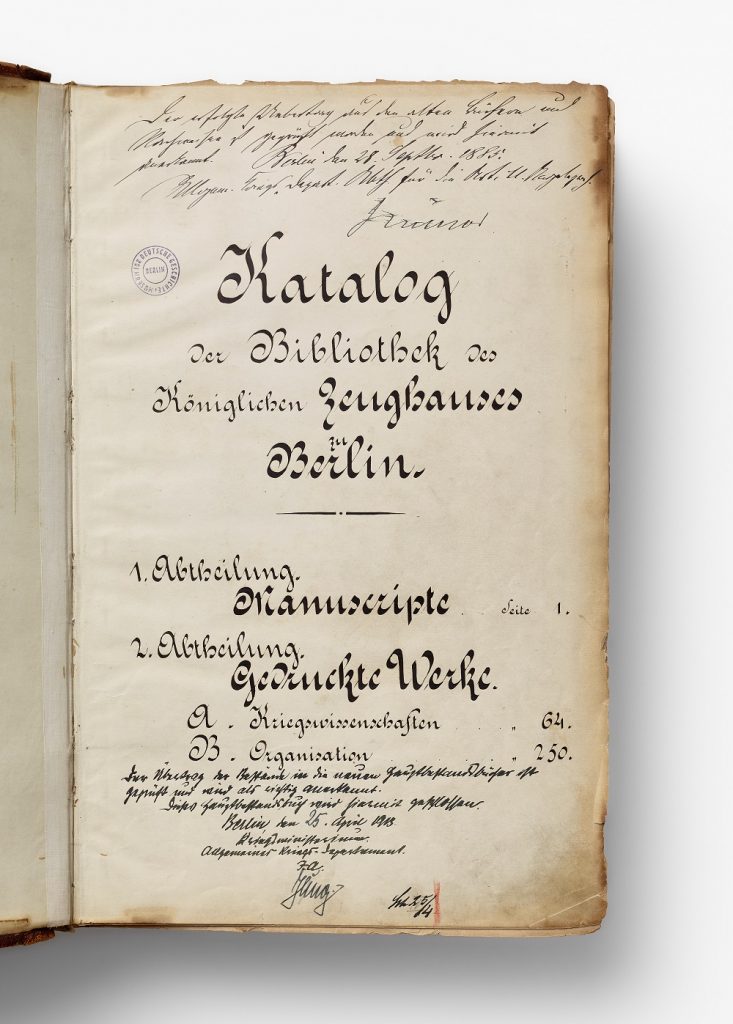 Der erfolgte Uebertrag aus den alten Büchern und
Nachweisen ist geprüft worden und wird hiermit
anerkannt. Berlin den 28. Septbr. 1885.
Allgem. Kriegs-Depart. Abth. für die Art. u.
MUSEUM FÜR DEUTSCHE GESCHICHTE
BERLIN
Katalog
der Bibliothek des
Königlichen Zeughauses
zu
Berlin.
1. Abtheilung.
Manuscripte . . Seite 1.
2. Abtheilung.
Gedruckte Werke.
A. Kriegswissenschaften . . . „ 64.
B. Organisation . . . . „ 250.
Der Übertrag der Bestände in die neuen Hauptbestandsbücher ist
geprüft und wird als richtig anerkannt.
Dieses Hauptbestandsbuch wird hiermit geschlossen.
Berlin, den 25. April 1913.
Kriegsministerium.
Allgemeines Kriegs-Departement.
25/4